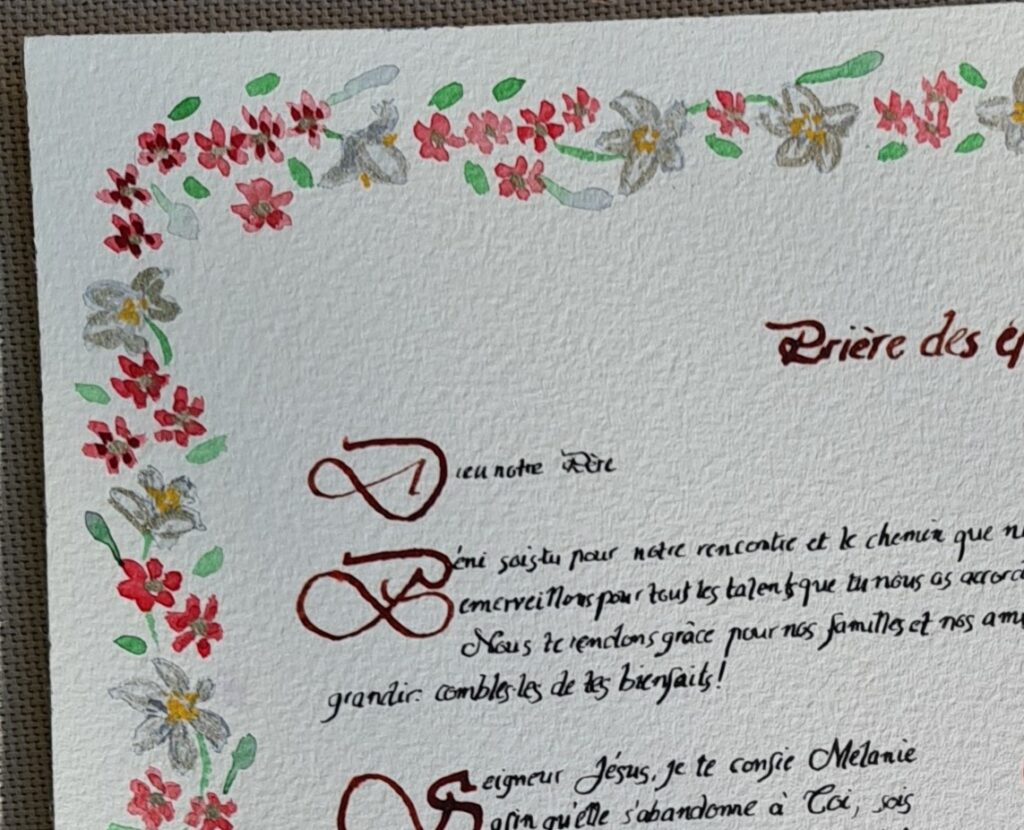 Prière des ép
Dieu notre Père
Béni sois tu pour notre rencontre et le chemin que n
emerveillons pour tout les talents que tu nous as accord
Nous te rendons grâce pour nos familles et nos ami
grandir: combles-les de tes bienfaits!
Seigneur Jésus, je te confie Mélanie
afin qu'elle s'abandonne à Toi, sois